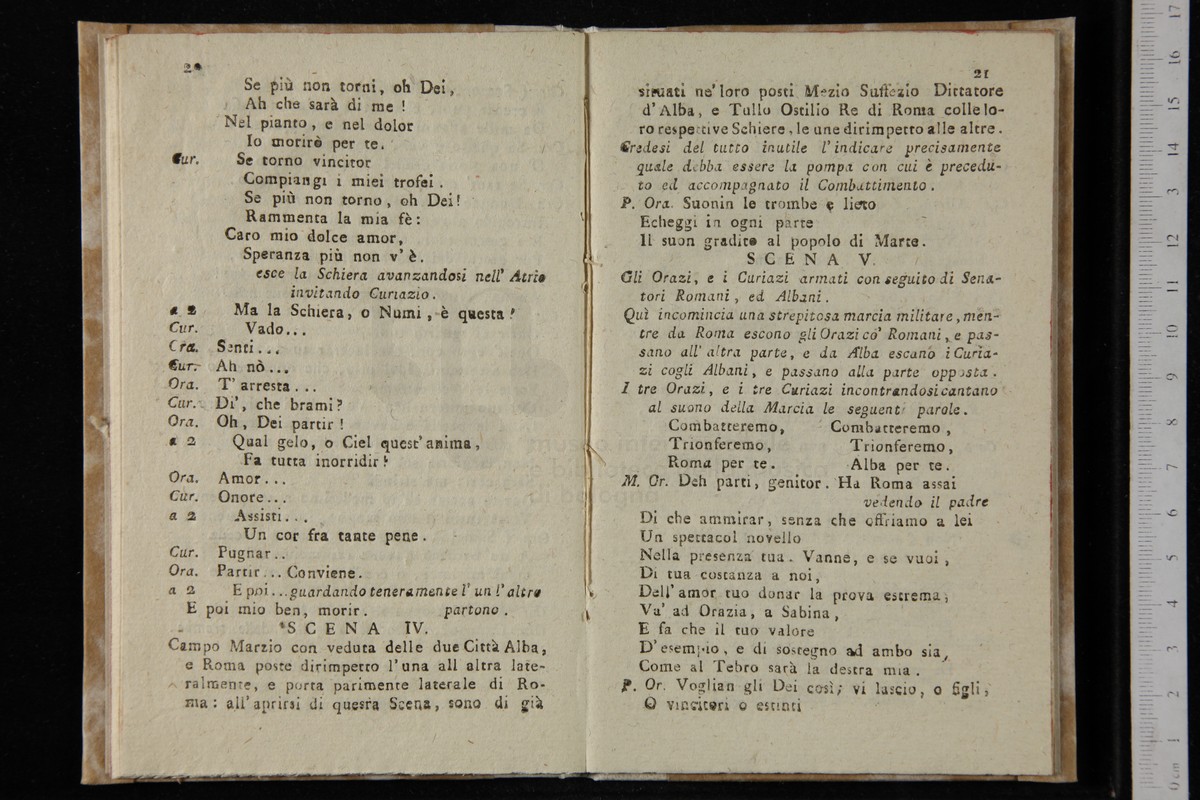 20
Se più non torni, oh Dei,
Ah che sarà di me !
Nel pianto, e nel dolor
Io morirò per te.
Cur. Se torno vincitor
Compiangi i miei trofei.
Se più non torno, oh Dei!
Rammenta la mia fè:
Caro mio dolce amor,
Speranza più non v'è.
esce la Schiera avanzandosi nell' Atrio
invitando Curiazio.
a 2 Ma la Schiera, o Numi, è questa!
Cur. Vado...
Ora. Senti...
Cur. Ah nò...
Ora. T' arresta...
Cur. Di', che brami?
Ora. Oh, Dei partir!
a 2 Qual gelo, o Ciel quest' anima,
Fa tutta inorridir!
Ora. Amor...
Cur. Onore...
a 2 Assisti...
Un cor fra tante pene.
Cur. Pugnar..
Ora. Partir... Conviene.
a 2 E poi...guardando teneramente l' un l' altro
E poi mio ben, morir. partono.
SCENA IV.
Campo Marzio con veduta delle due Città Alba,
e Roma poste dirimpetto l'una all altra late-
ralmente, e porta parimente laterale di Ro-
ma: all' aprirsi di questa Scena, sono di già
21
situati ne' loro posti Mezio Suffezio Dittatore
d' Alba, e Tullo Ostilio Re di Roma colle lo-
ro respettive Schiere, le une dirimpetto alle altre.
Credesi del tutto inutile l' indicare precisamente
quale debba essere la pompa con cui è precedu-
to ed accompagnato il Combattimento.
P. Ora. Suonin le trombe e lieto
Echeggi in ogni parte
Il suon gradito al popolo di Marte.
SCENA V.
Gli Orazi, e i Curiazi armati con seguito di Sena-
tori Romani, ed Albani.
Quì incomincia una strepitosa marcia militare, men-
tre da Roma escono gli Orazi cò' Romani, e pas-
sano all' altra parte, e da Alba escano i Curia-
zi cogli Albani, e passano alla parte opposta.
I tre Orazi, e i tre Curiazi incontrandosi cantano
al suono della Marcia le seguenti parole.
Combatteremo, Combatteremo,
Trionferemo, Trionferemo,
Roma per te. Alba per te.
M. Or. Deh parti, genitor. Ha Roma assai
vedendo il padre
Di che ammirar, senza che offriamo a lei
Un spettacol novello
Nella presenza tua. Vanne, e se vuoi,
Di tua costanza a noi,
Dell' amor tuo donar la prova estrema;
Va' ad Orazia, a Sabina,
E fa che il tuo valore
D' esempio, e di sostegno ad ambo sia,
Come al Tebro sarà la destra mia.
P. Or. Voglian gli Dei così; vi lascio, o figli,
O vincitori o estinti
0 cm 1 2 3 4 5 6 7 8 9 10 11 12 13 14 15 16 17